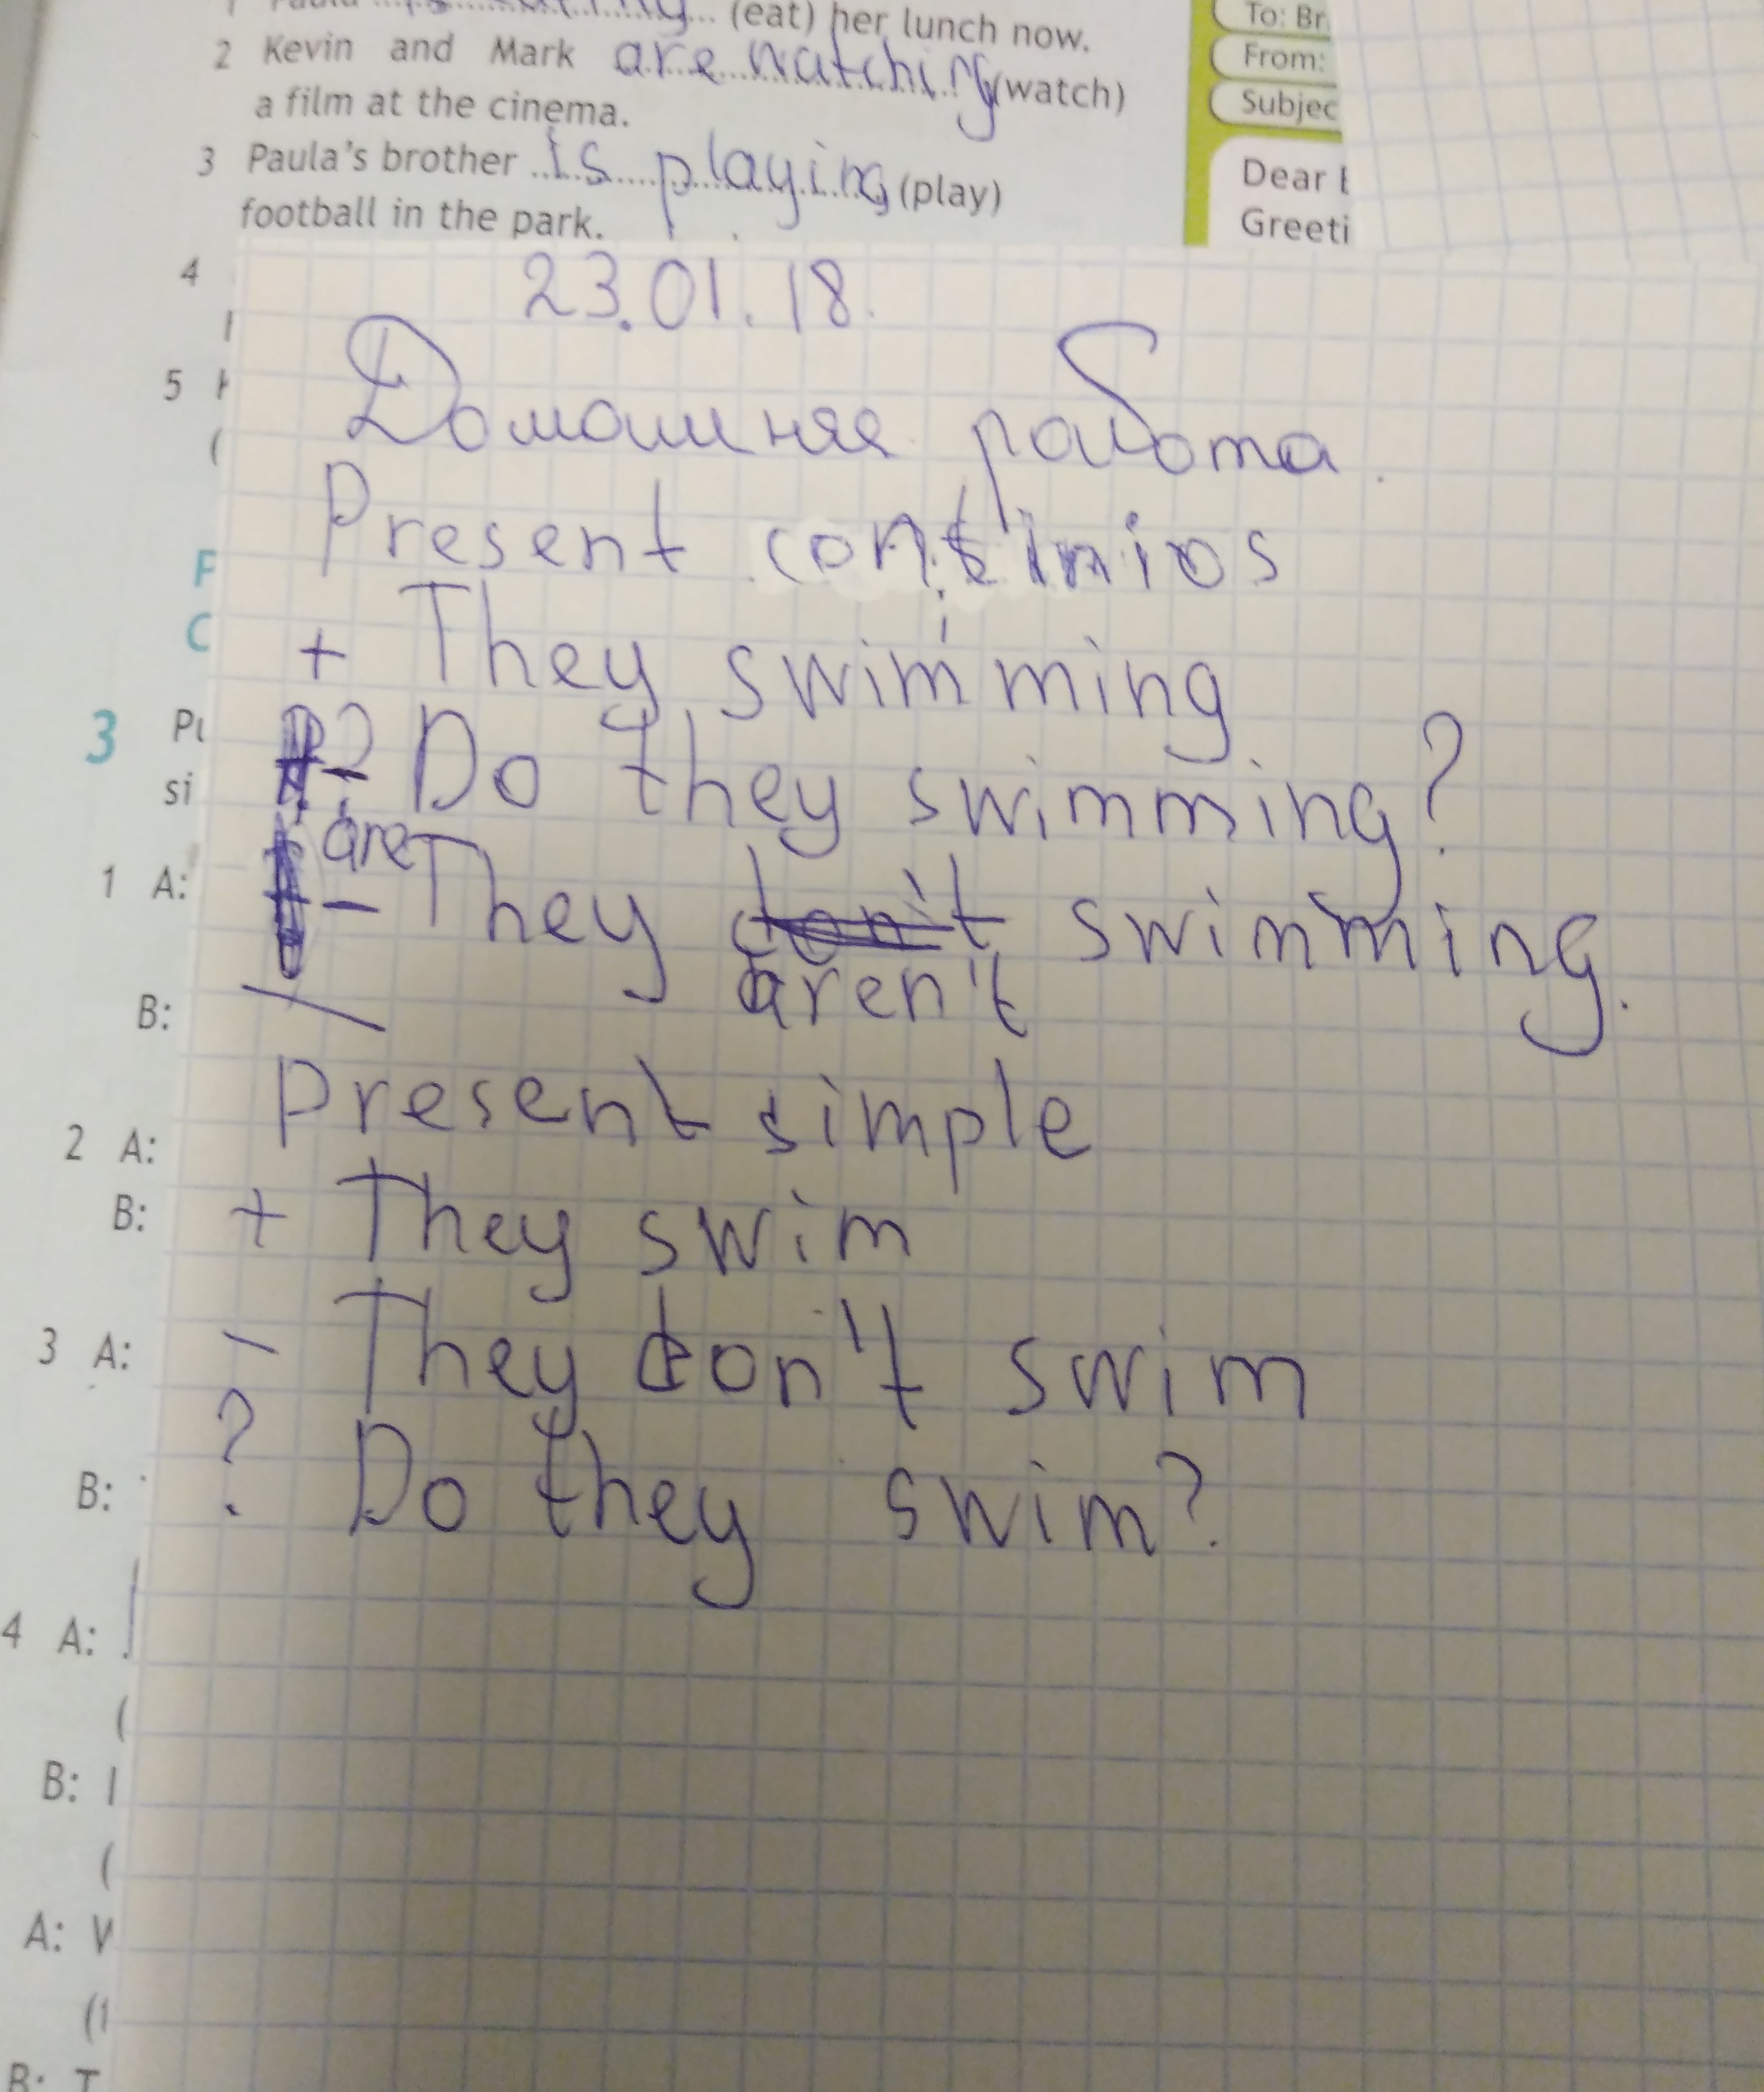 1 Paula is eating (eat) her lunch now.
2 Kevin and Mark are watching (watch)
a film at the cinema.
3 Paula's brother is playing (play)
football in the park.
To: Br
From:
Subjec
Dear
Greeti
4
5
(
3 Pu
si
1 A:
B:
2 A:
B:
3 A:
B:
4 A:
(
B: I
(
A: W
(1
B: T
23.01.18.
Домашняя работа.
Present continios
+ They swimming
? Do they swimming?
are
- They don't swimming.
aren't
Present simple
+ They swim
- They don't swim
? Do they swim?